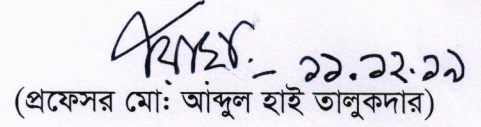 ১১.১২.১৯
(প্রফেসর মো: আব্দুল হাই তালুকদার)